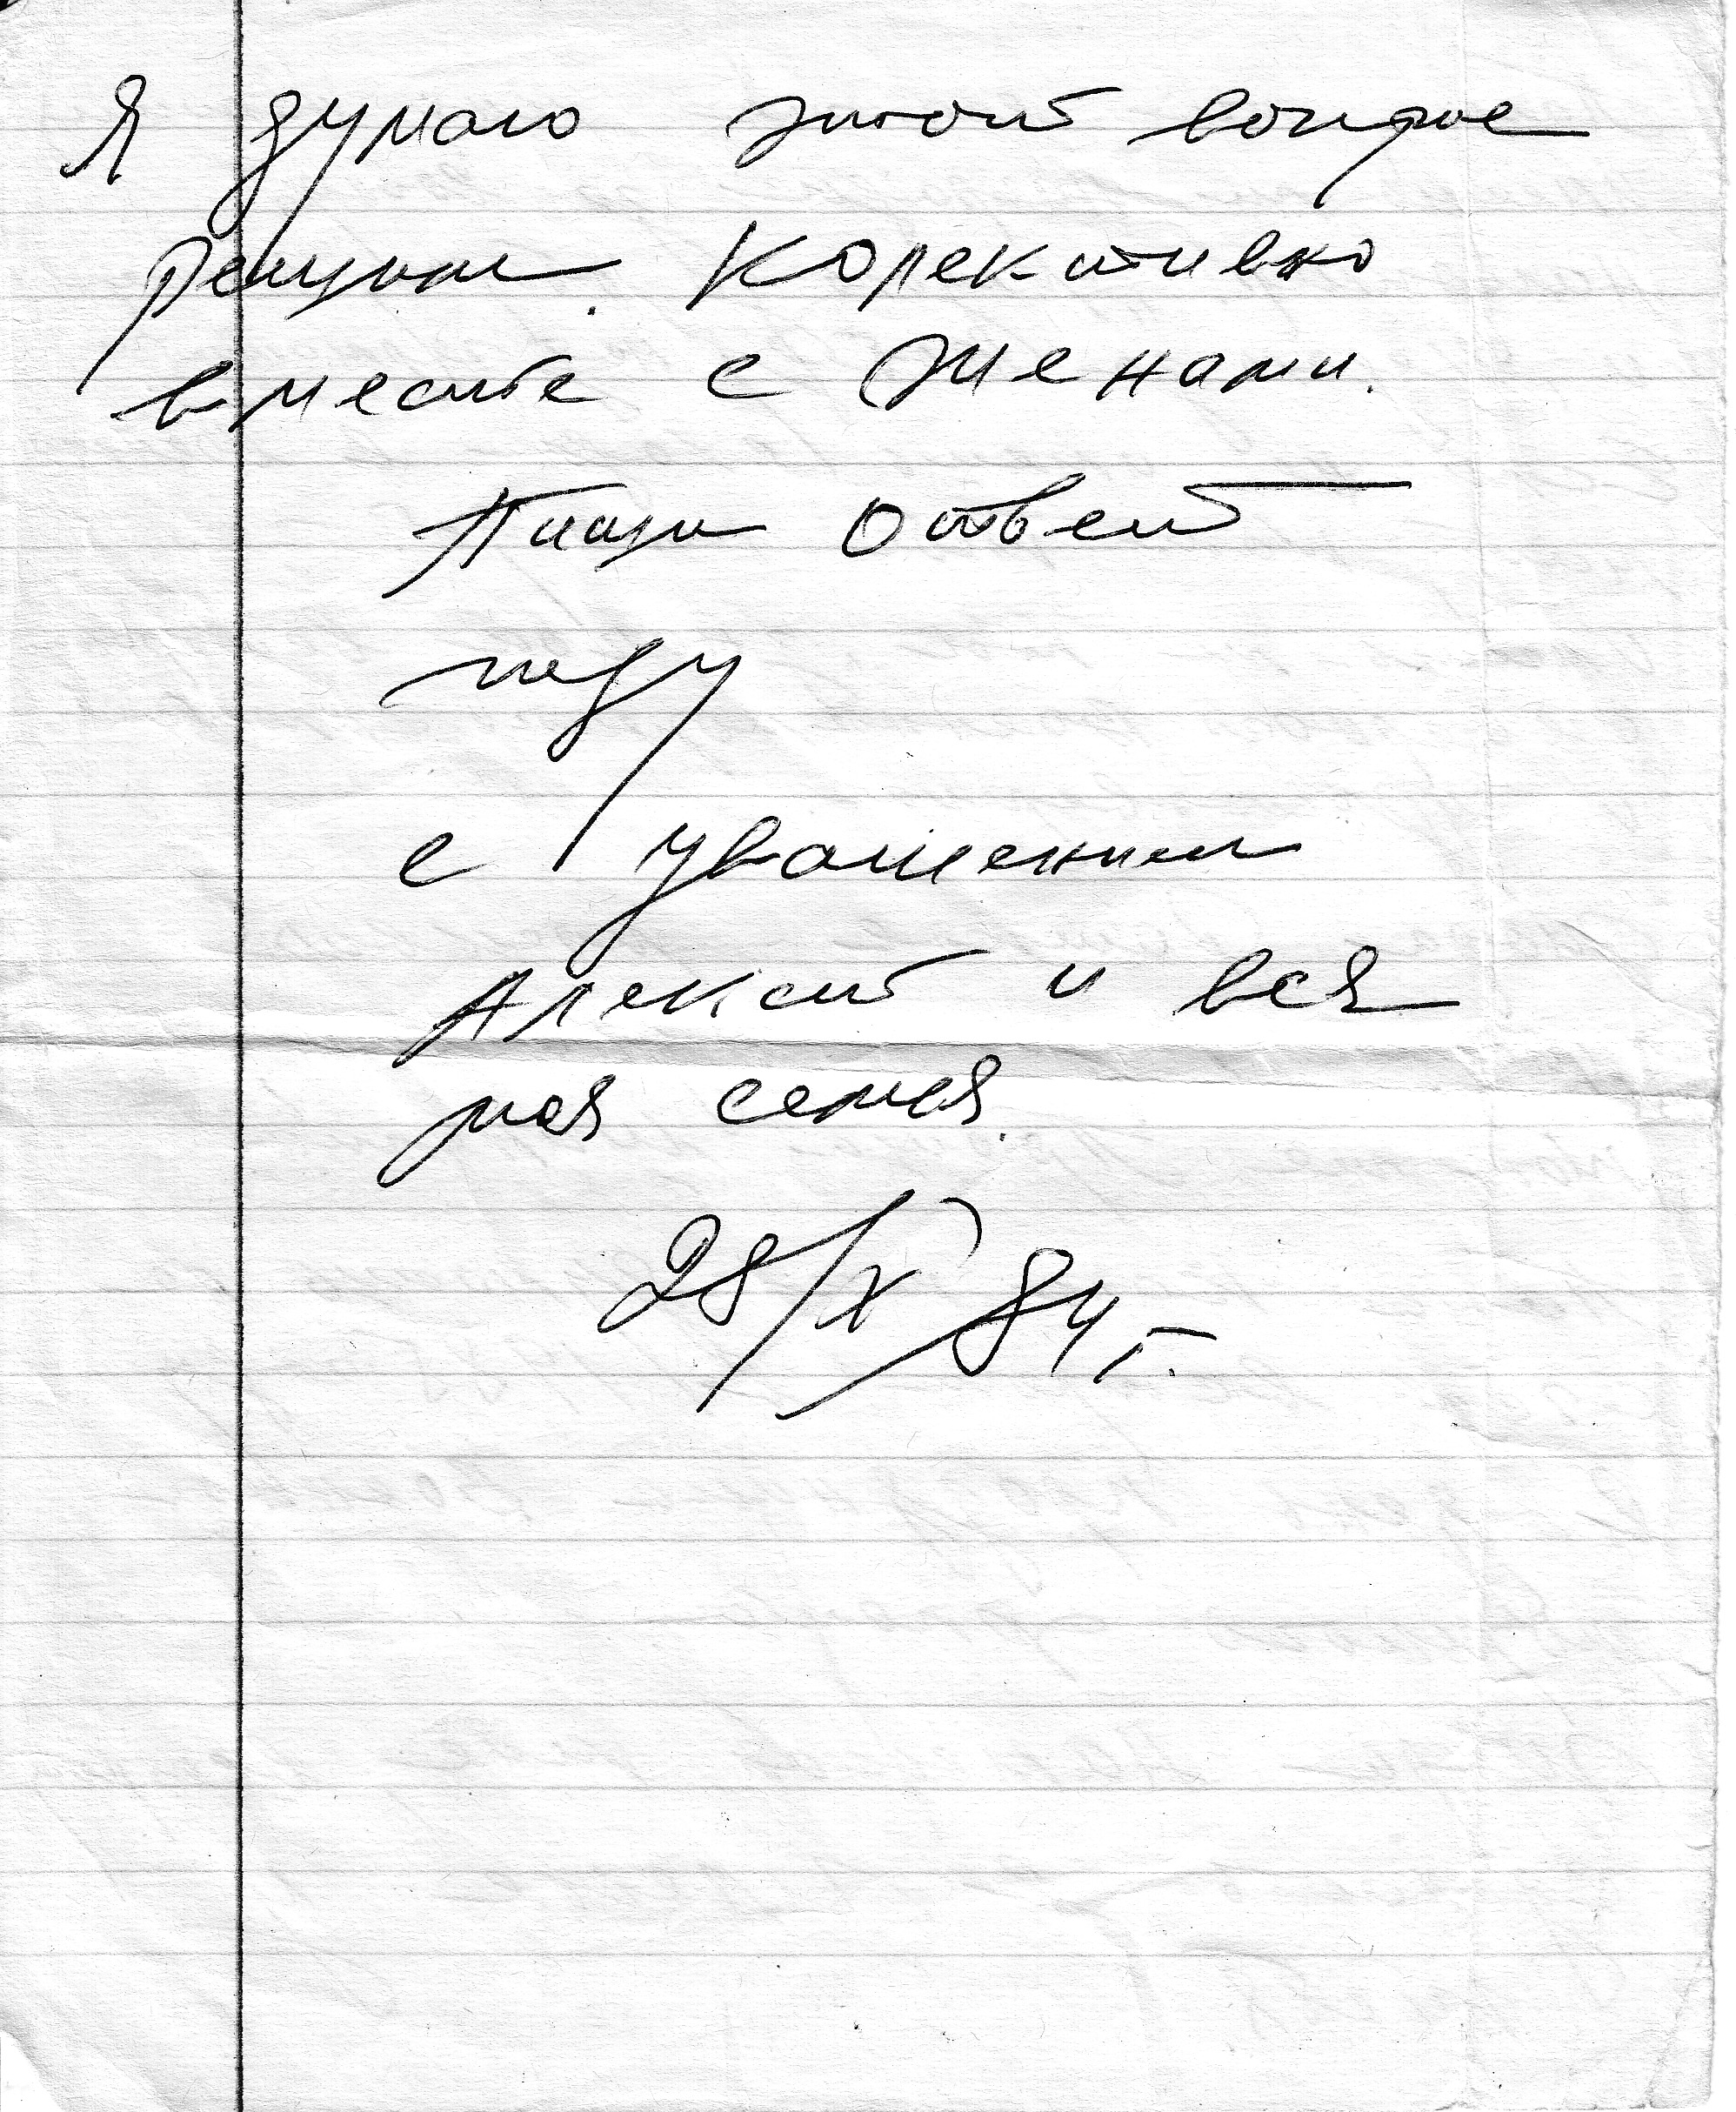 Я думаю этот вопрос
решим. Колективно
вместе с женами.
Пиши ответ
жду
с уважением
Алексей и вся
моя семья.
28/X 84 г.